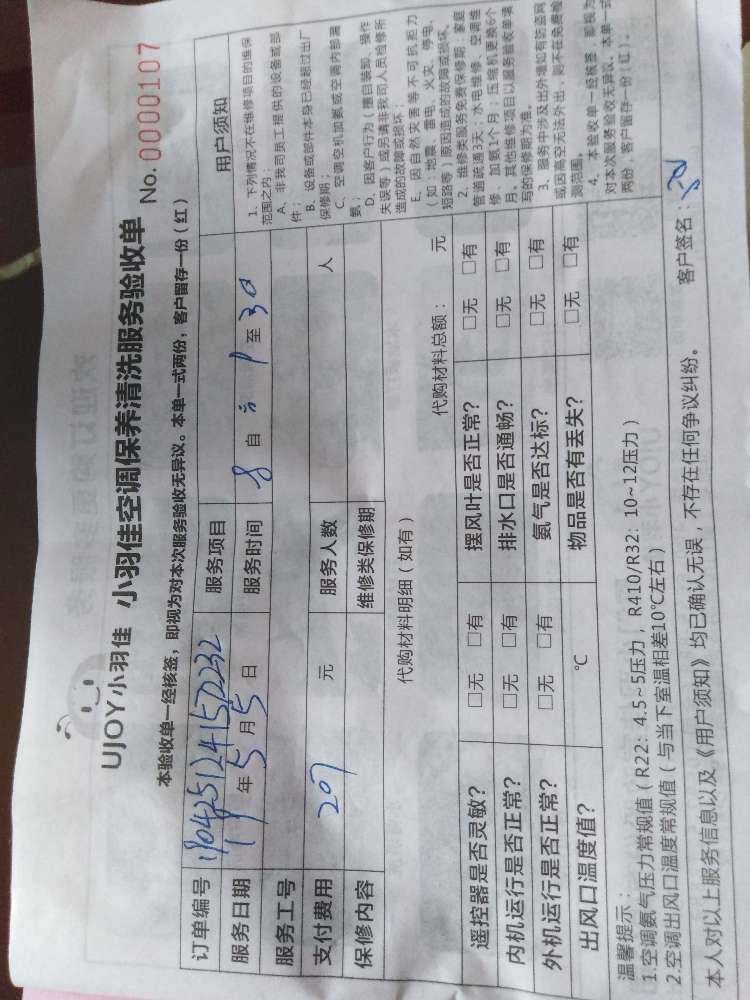 UJOY小羽佳 小羽佳空调保养清洗服务验收单
No. 0000107
本验收单一经核签，即视为对本次服务验收无异议。本单一式两份，客户留存一份（红）
订单编号 服务项目
服务日期 19 年 5 月 5 日 服务时间 8 自 至 30
服务工号
支付费用 207 元 服务人数 人
保修内容 维修类保修期
代购材料明细（如有） 代购材料总额： 元
遥控器是否灵敏？ □无 □有 摆风叶是否正常？ □无 □有
内机运行是否正常？ □无 □有 排水口是否通畅？ □无 □有
外机运行是否正常？ □无 □有 氨气是否达标？ □无 □有
出风口温度值？ ℃ 物品是否有丢失？ □无 □有
用户须知
1、下列情况不在维修项目的维保
范围之内：
A、非我司员工提供的设备或部
件；
B、设备或部件本身已经超过出厂
保修期；
C、空调空机加氨或空调内部漏
氨；
D、因客户行为（擅自装卸、操作
失误等）或另请非我司人员检修所
造成的故障或损坏；
E、因自然灾害等不可抗拒力
（如：地震、雷电、火灾、停电、
短路等）原因造成的故障或损坏。
2、维修类服务免费保修期：家庭
管道疏通3天；水电维修、空调维
修、加氨1个月；压缩机更换6个
月。其他维修项目以服务验收单填
写的保修期为准。
3、服务中涉及出外墙如有防盗网
或因高空无法外出，则不在免费检
测范围。
4、本验收单一经核签，即视为
对本次服务验收无异议。本单一式
两份，客户留存一份（红）。
温馨提示：
1.空调氨气压力常规值（R22：4.5~5压力，R410/R32：10~12压力）
2.空调出风口温度常规值（与当下室温相差10℃左右）
本人对以上服务信息以及《用户须知》均已确认无误，不存在任何争议纠纷。 客户签名：